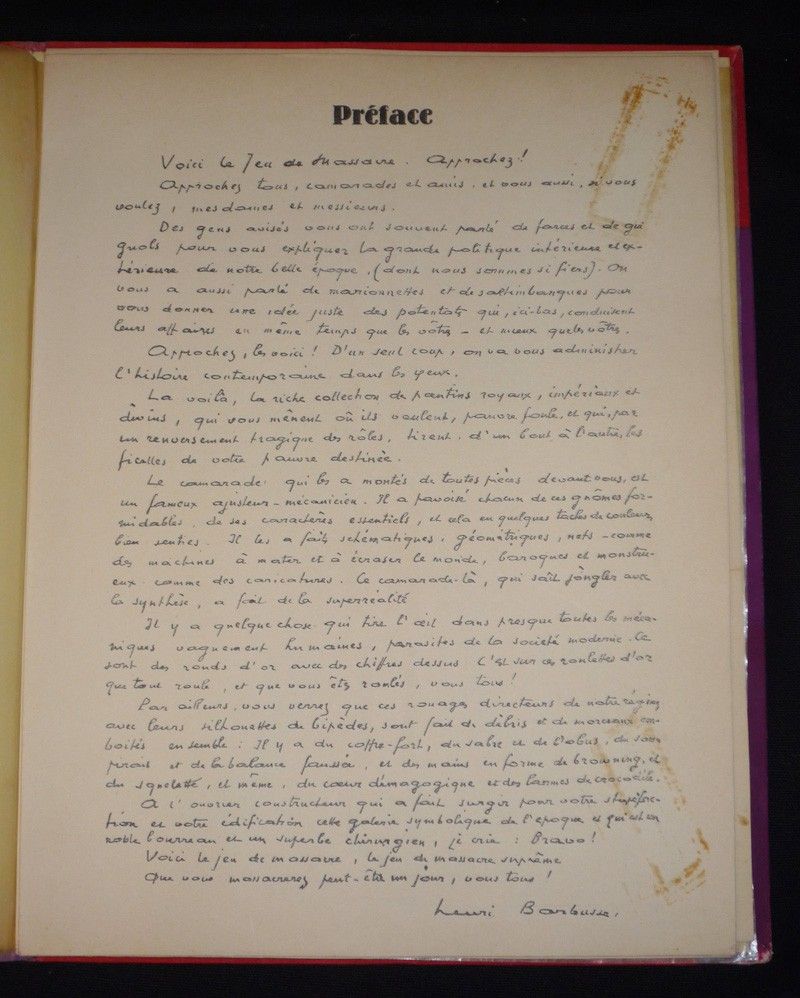 Préface
Voici le Jeu de Massacre. Approchez !
Approchez tous, camarades et amis, et vous aussi, si vous
voulez, mesdames et messieurs.
Des gens avisés vous ont souvent parlé de farces et de gui
gnols pour vous expliquer la grande politique intérieure et ex-
térieure de notre belle époque, (dont nous sommes si fiers). On
vous a aussi parlé de marionnettes et de saltimbanques pour
vous donner une idée juste des potentats qui, ici-bas, conduisent
leurs affaires en même temps que les vôtres - et mieux que les vôtres.
Approchez, les voici ! D'un seul coup, on va vous administrer
l'histoire contemporaine dans les yeux.
La voilà, la riche collection de pantins royaux, impériaux et
divins, qui vous mènent où ils veulent, pauvre foule, et qui, par
un renversement tragique des rôles, tirent, d'un bout à l'autre, les
ficelles de votre pauvre destinée.
Le camarade qui les a montés de toutes pièces devant vous, est
un fameux ajusteur-mécanicien. Il a pavoisé chacun de ces gnômes for-
midables, de ses caractères essentiels, et cela en quelques taches de couleurs
bien senties. Il les a faits schématiques, géométriques, nets - comme
des machines à mater et à écraser le monde, baroques et monstru-
eux comme des caricatures. Ce camarade-là, qui sait jongler avec
la synthèse, a fait de la superréalité
Il y a quelque chose qui tire l'œil dans presque toutes les méca-
niques vaguement humaines, parasites de la société moderne. Ce
sont des ronds d'or avec des chiffres dessus C'est sur ces roulettes d'or
que tout roule, et que vous êtes roulés, vous tous !
Par ailleurs, vous verrez que ces rouages directeurs de notre régime
avec leurs silhouettes de bipèdes, sont fait de débris et de morceaux em-
boités ensemble : Il y a du coffre-fort, du sabre et de l'obus, du
et de la balance faussée, et des mains en forme de browning, et
du squelette, et même, du cœur démagogique et des larmes de crocodile.
A l'ouvrier constructeur qui a fait surgir pour votre stupéfac-
tion et votre édification cette galerie symbolique de l'époque et qui est un
noble bourreau et un superbe chirurgien, je crie : Bravo !
Voici le jeu de massacre, le jeu de massacre suprême
Que vous massacrerez peut-être un jour, vous tous !
Henri Barbusse.